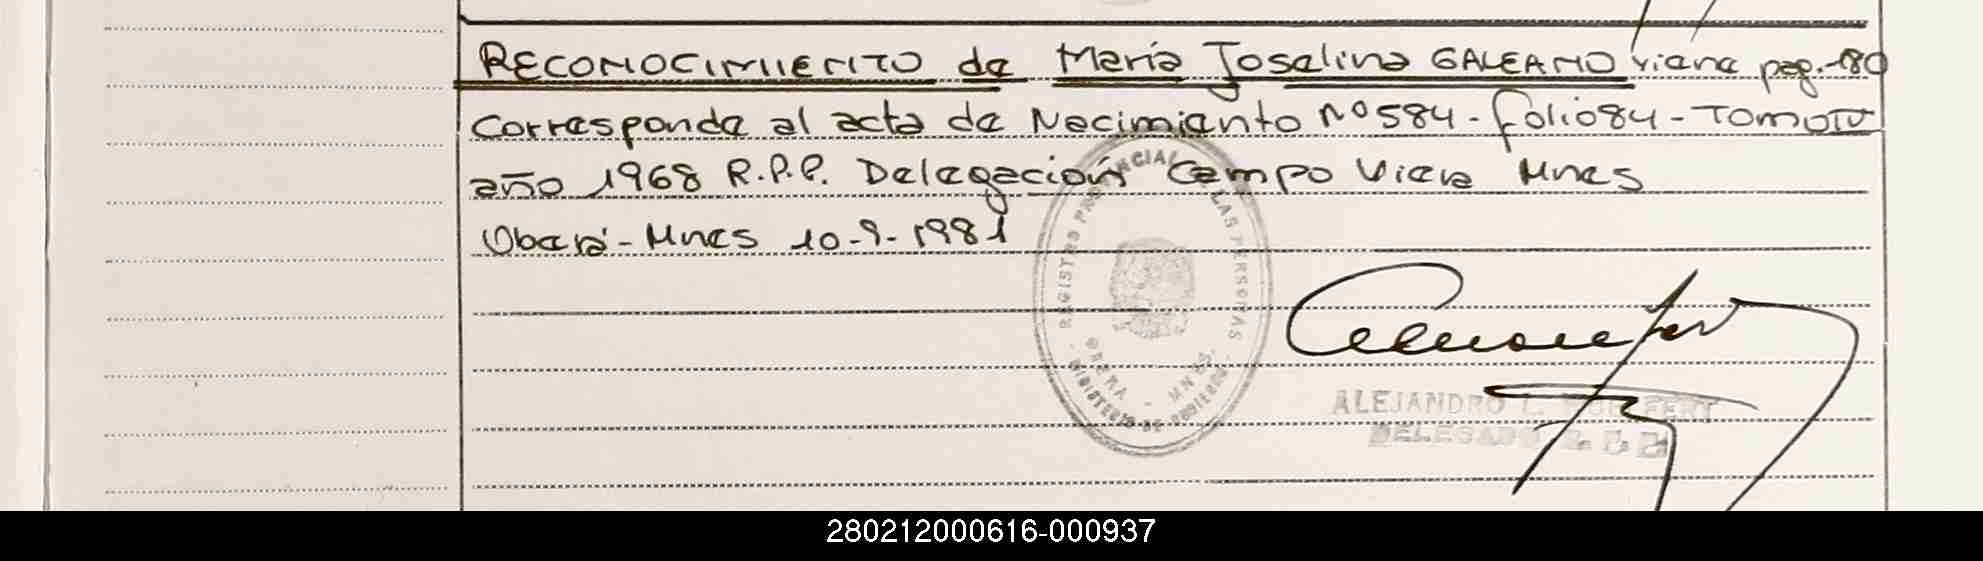 RECONOCIMIENTO de María Joselina GALEANO viene pag.-80
Corresponde al acta de Nacimiento Nº 584-folio 84-Tomo IV
año 1968 R.P.P. Delegación Campo Viera Mnes
Oberá-Mnes 10-9-1981
REGISTRO PROVINCIAL LAS PERSONAS
OBERA - MNES.
MINISTERIO DE GOBIERNO
ALEJANDRO L.
DELEGADO R. P. P.
280212000616-000937